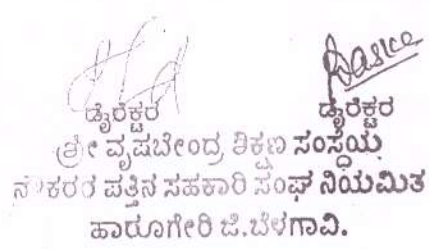 ಡೈರೆಕ್ಟರ ಡೈರೆಕ್ಟರ
ಶ್ರೀ ವೃಷಬೇಂದ್ರ ಶಿಕ್ಷಣ ಸಂಸ್ಥೆಯ
ನೌಕರರ ಪತ್ತಿನ ಸಹಕಾರಿ ಸಂಘ ನಿಯಮಿತ
ಹಾರೂಗೇರಿ ಜಿ.ಬೆಳಗಾವಿ.